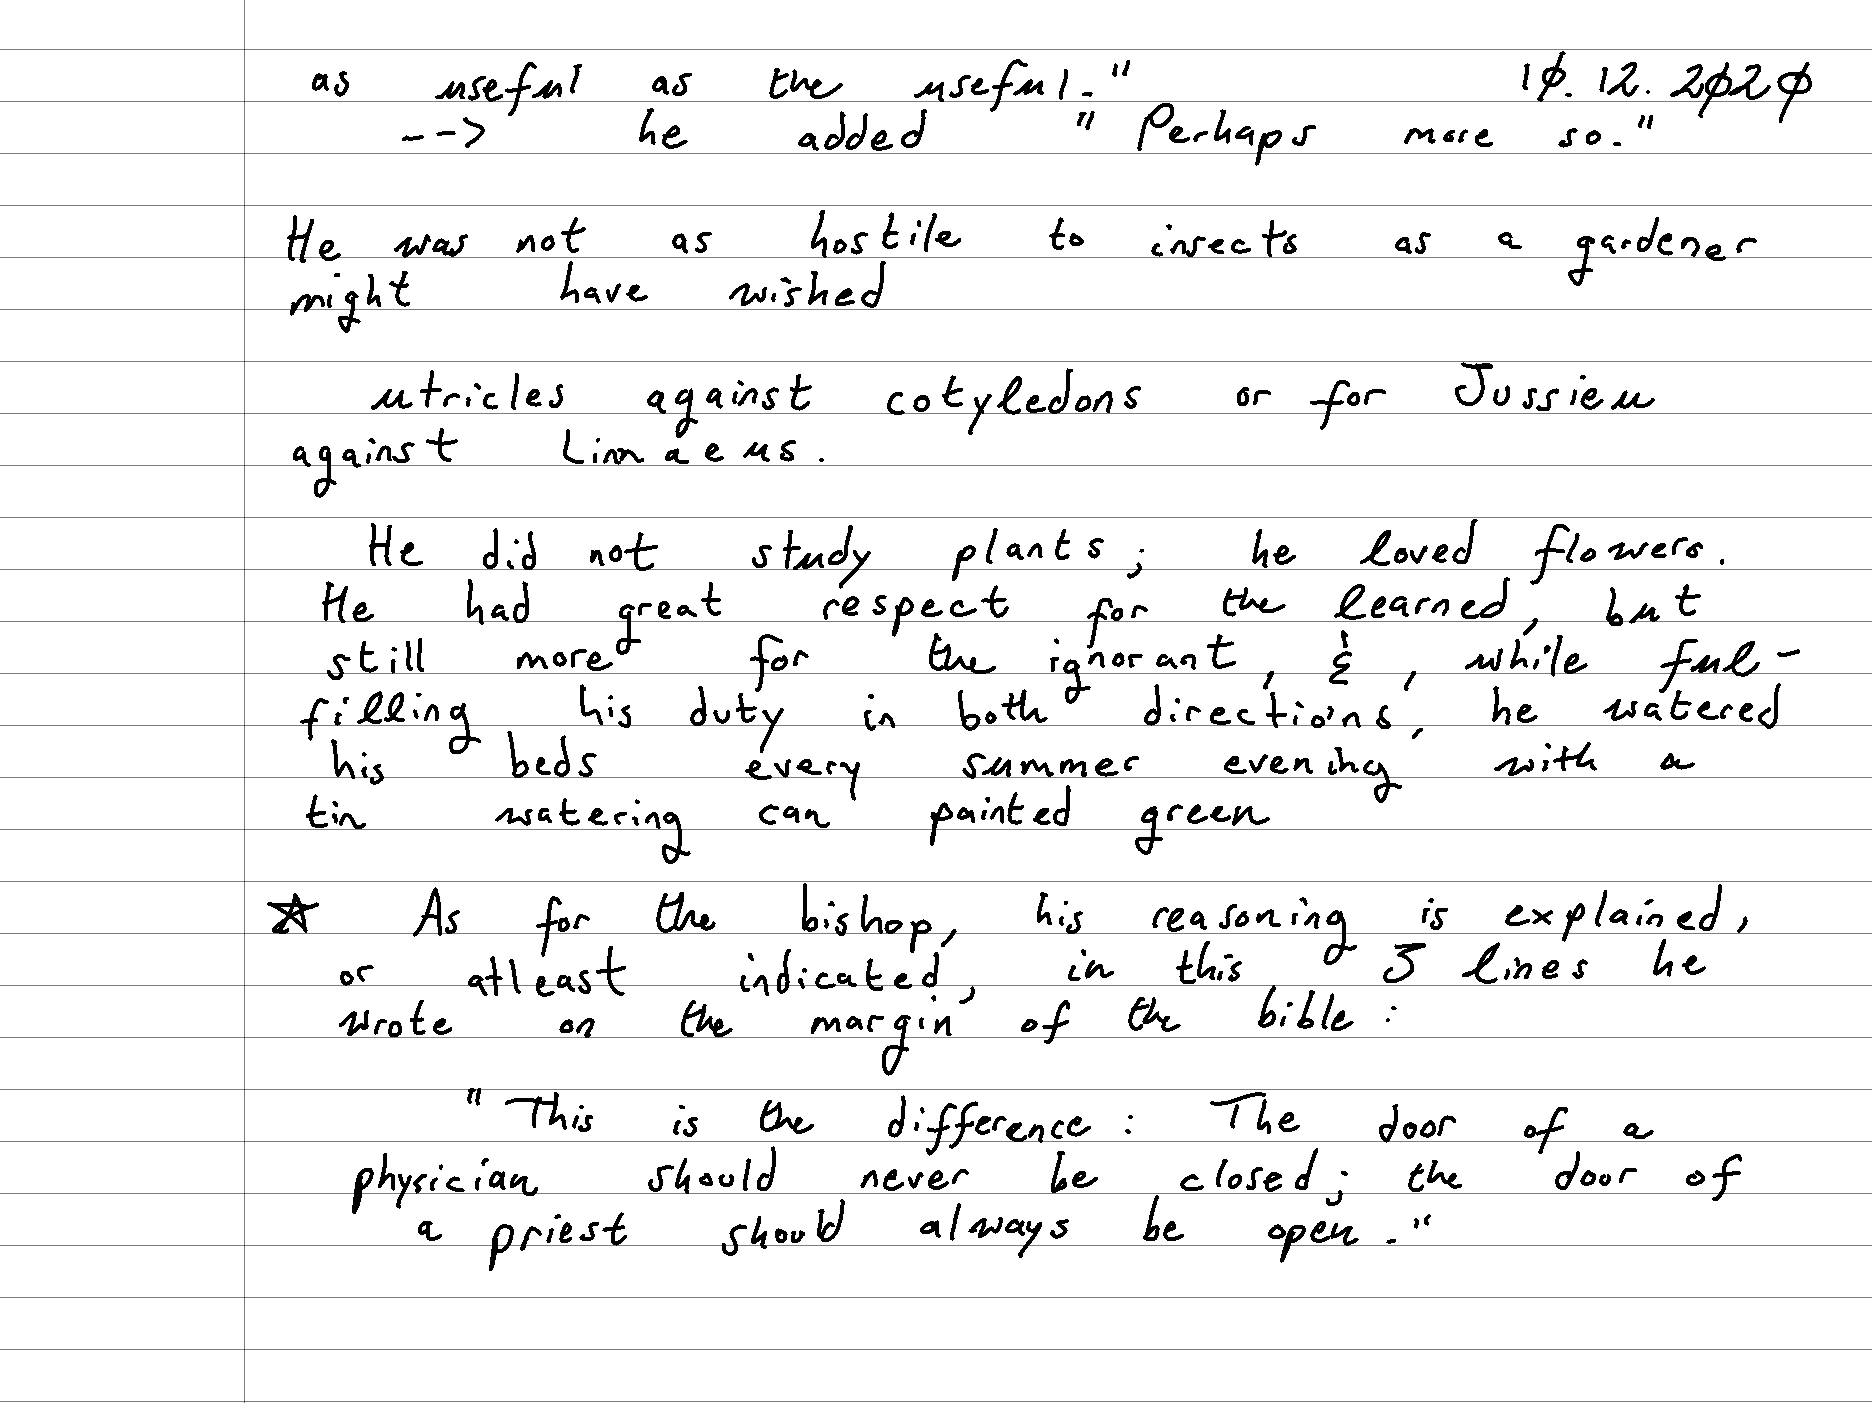 as useful as the useful." 10.12.2020
--> he added "Perhaps more so."
He was not as hostile to insects as a gardener
might have wished
utricles against cotyledons or for Jussieu
against Linnaeus.
He did not study plants; he loved flowers.
He had great respect for the learned, but
still more for the ignorant, &, while ful-
filling his duty in both directions, he watered
his beds every summer evening with a
tin watering can painted green
☆ As for the bishop, his reasoning is explained,
or atleast indicated, in this 3 lines he
wrote on the margin of the bible:
"This is the difference: The door of a
physician should never be closed; the door of
a priest should always be open."